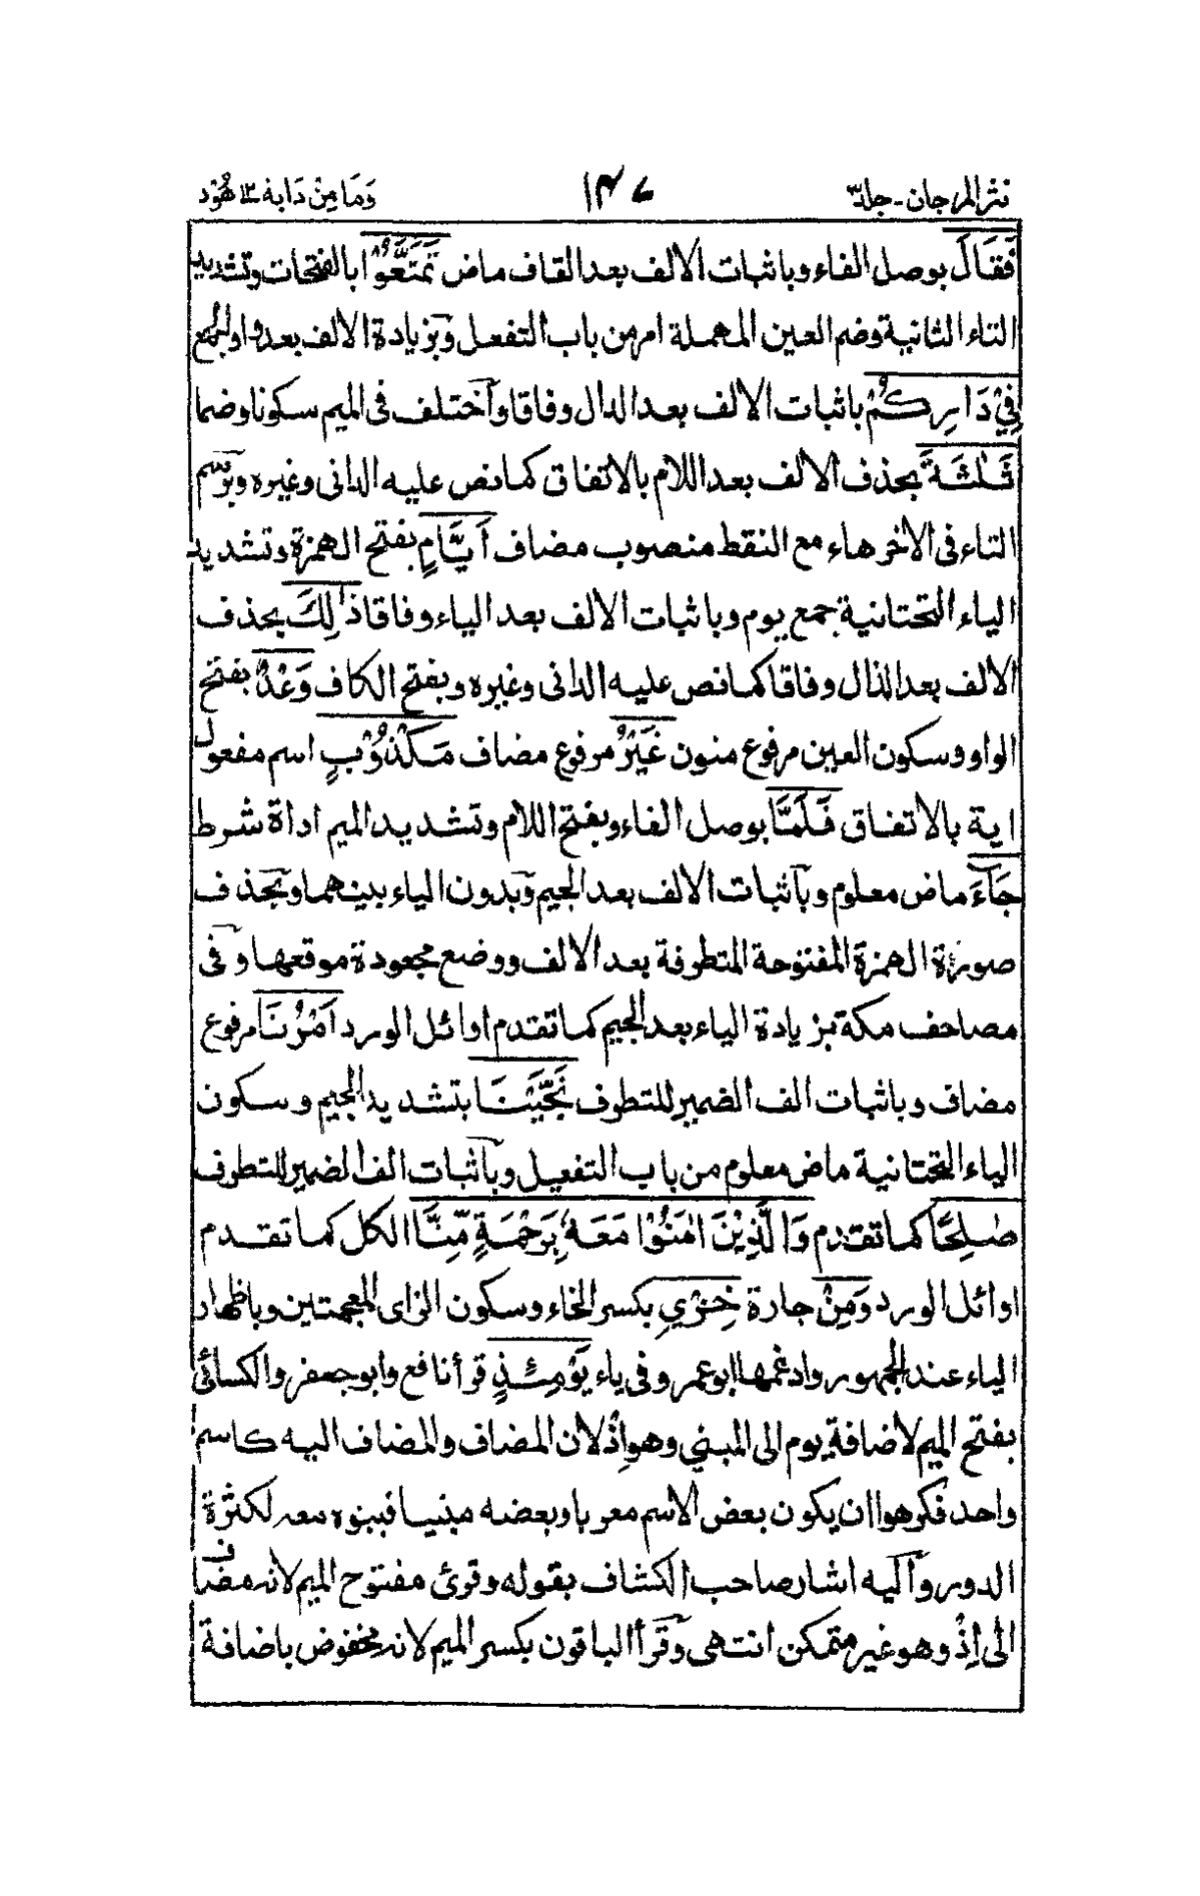 نثر المرجان - جلد۳ ۱۴۷ وَمَا مِنْ دَابة ۱۲ هُوْد
فَقَالَ بوصل الفاء وباثبات الالف بعد القاف ماض تَمَتَّعُوْا بالفتحات وتشديد
التاء الثانية وضم العين المهملة امر من باب التفعل وبزيادة الالف بعد واو الجمع
فِيْ دَارِكُمْ باثبات الالف بعد الدال وفاقا واختلف فى الميم سكونا وضما
ثَلٰثَةَ بحذف الالف بعد اللام بالاتفاق كما نص عليه الدانى وغيره وبرسم
التاء فى الاخر هاء مع النقط منصوب مضاف اَيَّامٍ بفتح الهمزة وتشديد
الياء التحتانية جمع يوم وباثبات الالف بعد الياء وفاقا ذٰلِكَ بحذف
الالف بعد الذال وفاقا كما نص عليه الدانى وغيره وبفتح الكاف وَعْدٌ بفتح
الواو وسكون العين مرفوع منون غَيْرُ مرفوع مضاف مَكْذُوْبٍ اسم مفعول
اية بالاتفاق فَلَمَّا بوصل الفاء وبفتح اللام وتشديد الميم اداة شرط
جَآءَ ماض معلوم وبآثبات الالف بعد الجيم وبدون الياء بينهما وبحذف
صورة الهمزة المفتوحة المتطرفة بعد الالف ووضع مجعودة موقعها وفى
مصاحف مكة بزيادة الياء بعد الجيم كما تقدم اوائل الورد اَمْرُنَا مرفوع
مضاف وباثبات الف الضمير للتطرف نَجَّيْنَا بتشديد الجيم وسكون
الياء التحتانية ماض معلوم من باب التفعيل وبآثبات الف الضمير للتطرف
صٰلِحًا كما تقدم وَالَّذِيْنَ اٰمَنُوْا مَعَهٗ بِرَحْمَةٍ مِّنَّا الكل كما تقدم
اوائل الورد وَمِنْ جارة خِزْيِ بكسر الخاء وسكون الزاى المعجمتين وباظهار
الياء عند الجمهور وادغمها ابو عمرو فى ياء يَوْمِئِذٍ قرأ نافع وابو جعفر والكسائى
بفتح الميم لاضافة يوم الى المبني وهو اِذْ لان المضاف والمضاف اليه كاسم
واحد فكرهوا ان يكون بعض الاسم معربا وبعضه مبنيا فبنوه معه لكثرة
الدور وآليه اشار صاحب الكشاف بقوله وقرئ مفتوح الميم لانه مضاف
الى اِذْ وهو غير متمكن انتهى وقرأ الباقون بكسر الميم لانه مخفوض باضافة